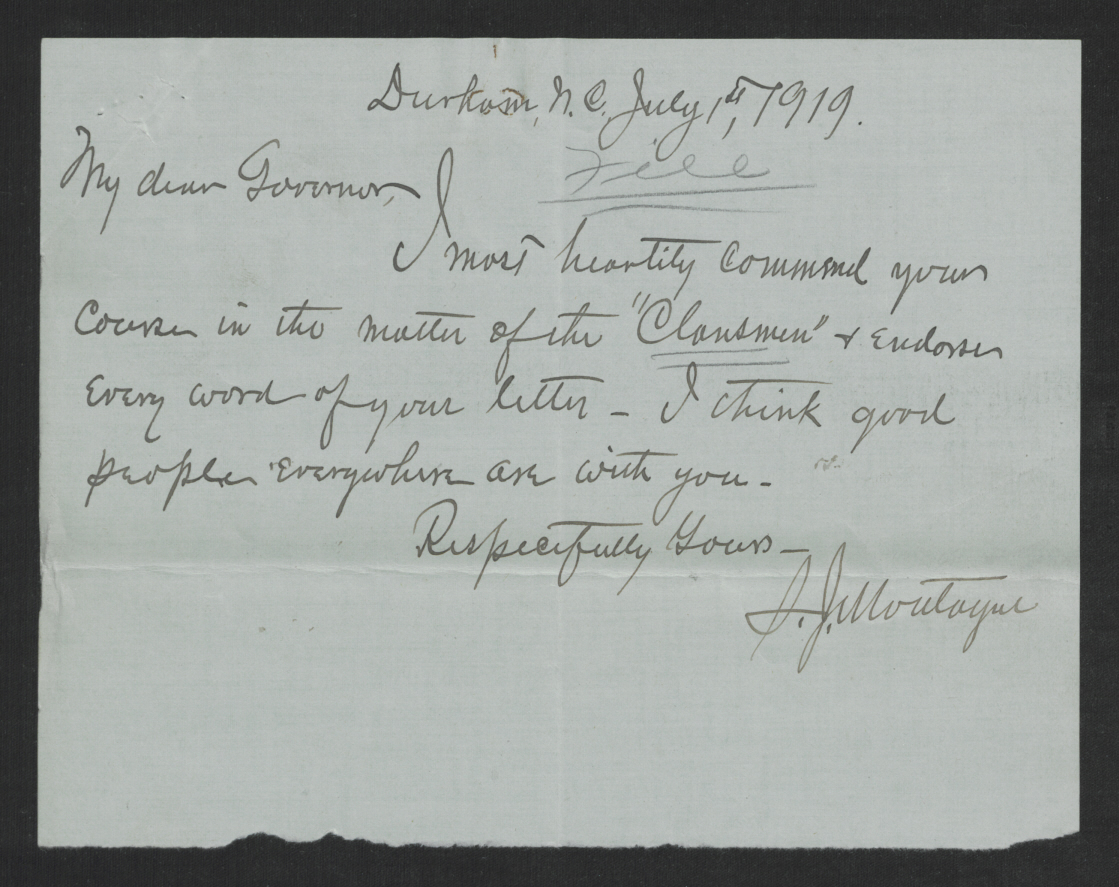 Durham, N.C. July 1st, 1919.
File
My dear Governor,
I most heartily commend your
course in the matter of the "Clansmen" & endorse
every word of your letter - I think good
people everywhere are with you -
Respectfully Yours -
S. J. Montague